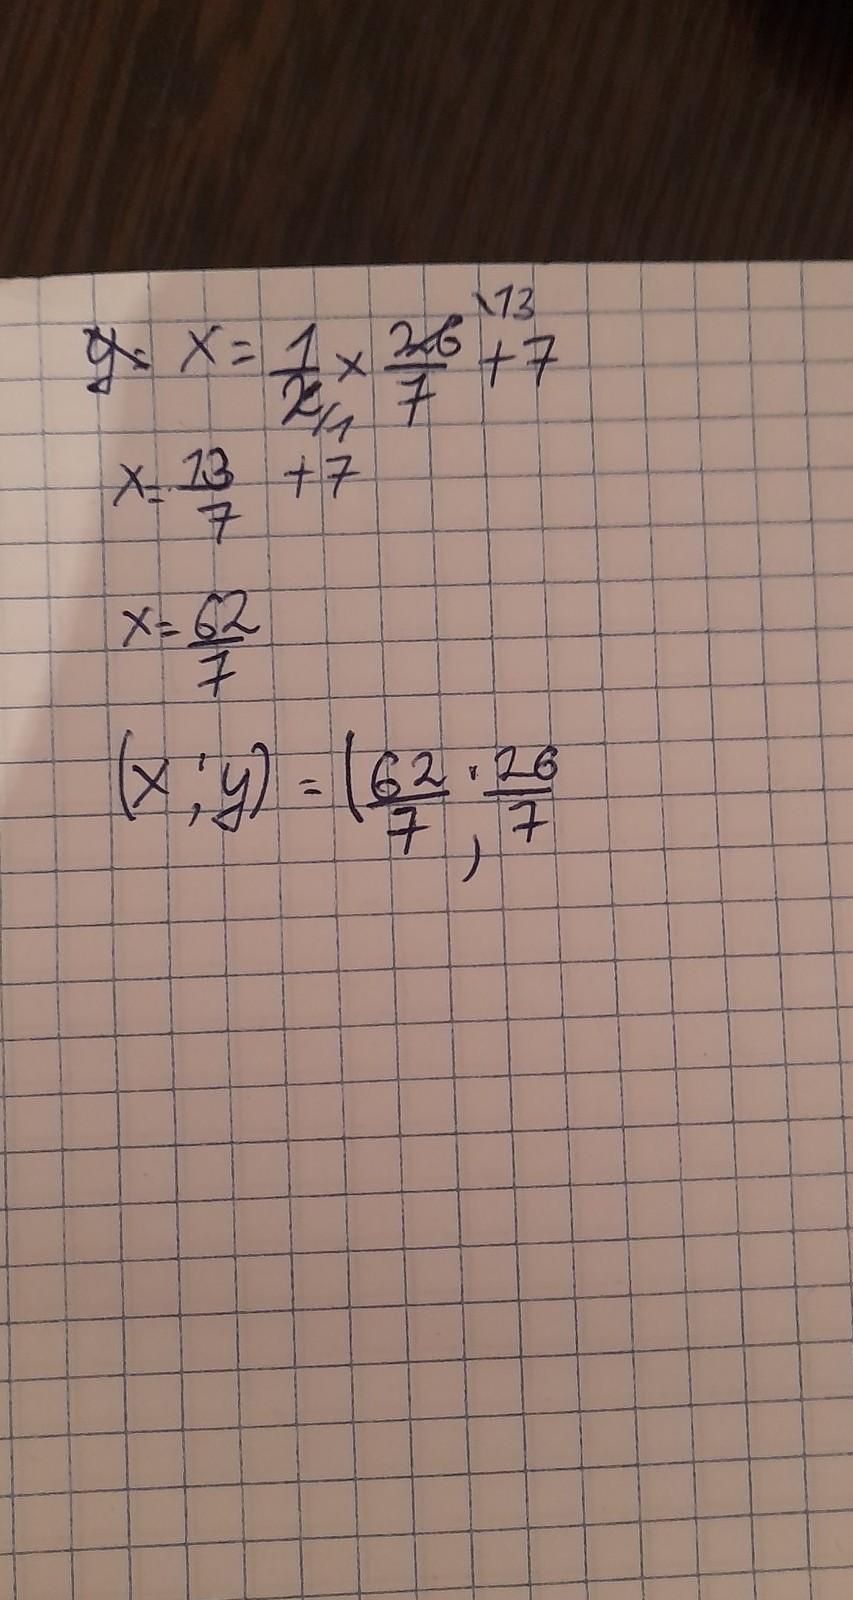 y= x = 1/2/1 × 26\13/7 + 7
x = 13/7 + 7
x = 62/7
(x ; y) = (62/7 ; 26/7